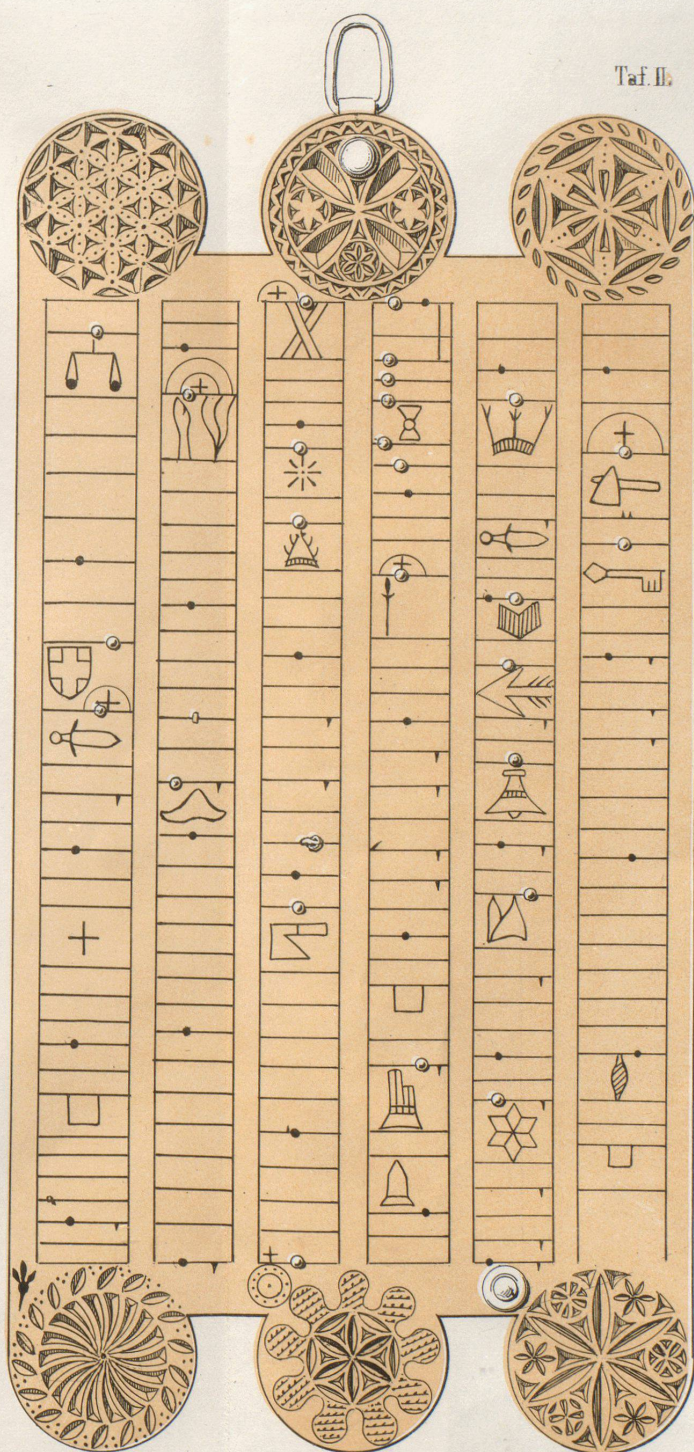 Taf. II.